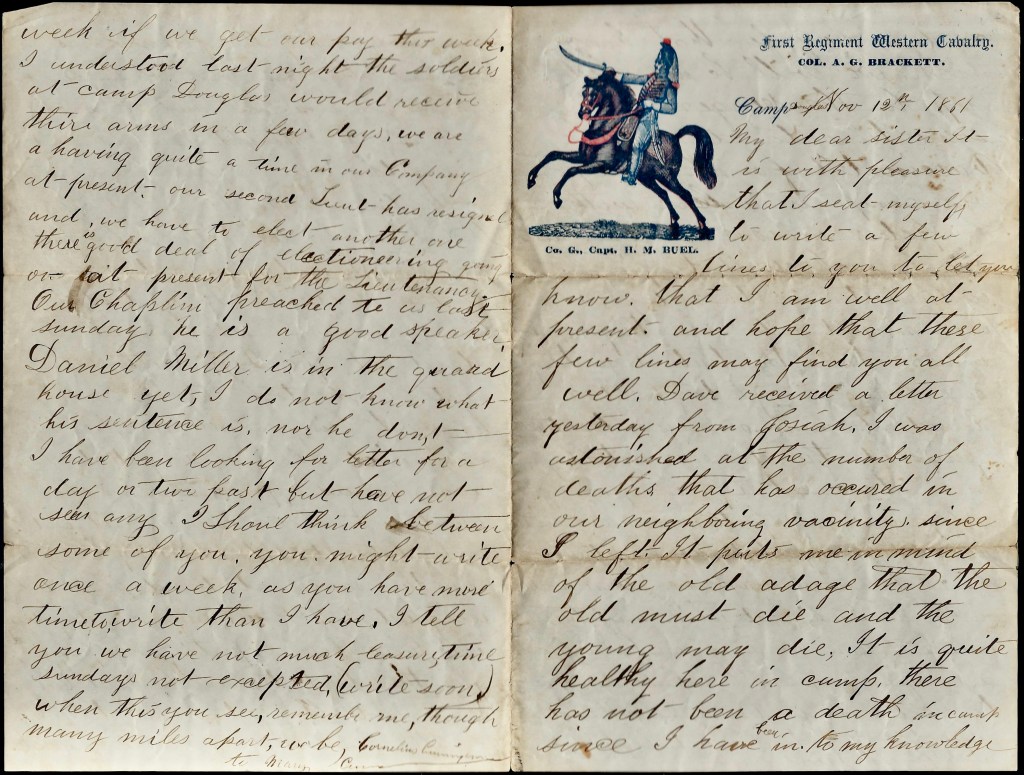 First Regiment Western Cavalry.
COL. A. G. BRACKETT.
Co. G., Capt. H. M. BUEL.
Camp Nov 12th, 1861
My dear sister It
is with pleasure
that I seat myself,
to write a few
lines to you to let you
know. that I am well at
present. and hope that these
few lines may find you all
well. Dave received a letter
yesterday from Josiah. I was
astonished at the number of
deaths that has occured in
our neighboring vacinity. since
I left. It puts me in mind
of the old adage that the
old must die and the
young may die. It is quite
healthy here in camp. there
has not been a death in camp
since I have been in. to my knowledge
week if we get our pay this week.
I understood last night the soldiers
at camp Douglas would receive
thire arms in a few days, we are
a having quite a time in our Company
at present our second Lieut has resigned
and, we have to elect another one
there is good deal of electioneering going
on at present for the Lieutenancy
Our Chaplin preached to us last
sunday he is a good speaker,
Daniel Miller is in the guard
house yet, I do not know what
his sentence is, nor he don,t
I have been looking for letter for a
day or two past but have not
seen any I Shoul think between
some of you, you. might write
once a week, as you have more
time to write than I have. I tell
you we have not much leasury time
sundays not excepted, (write soon)
when this you see, remember me, though
many miles apart, we be, Cornelius
to Mary